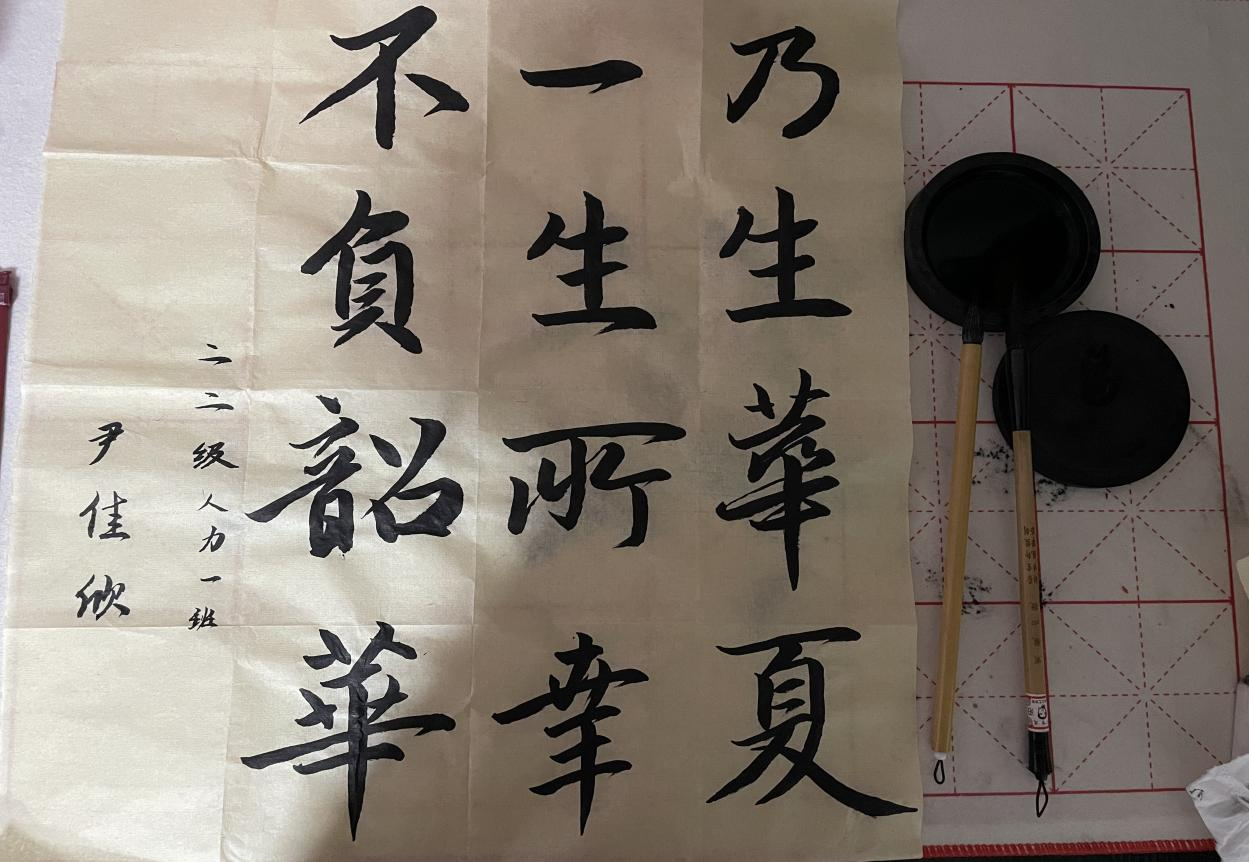 乃生華夏
一生所幸
不負韶華
二二级人力一班
尹佳欣